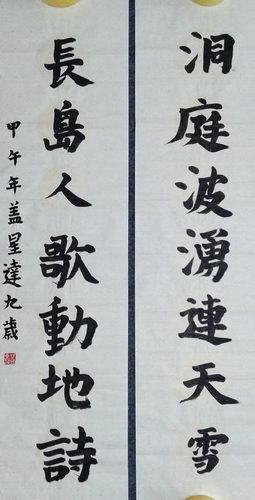 洞庭波湧連天雪
長島人歌動地詩
甲午年盖星達九歲